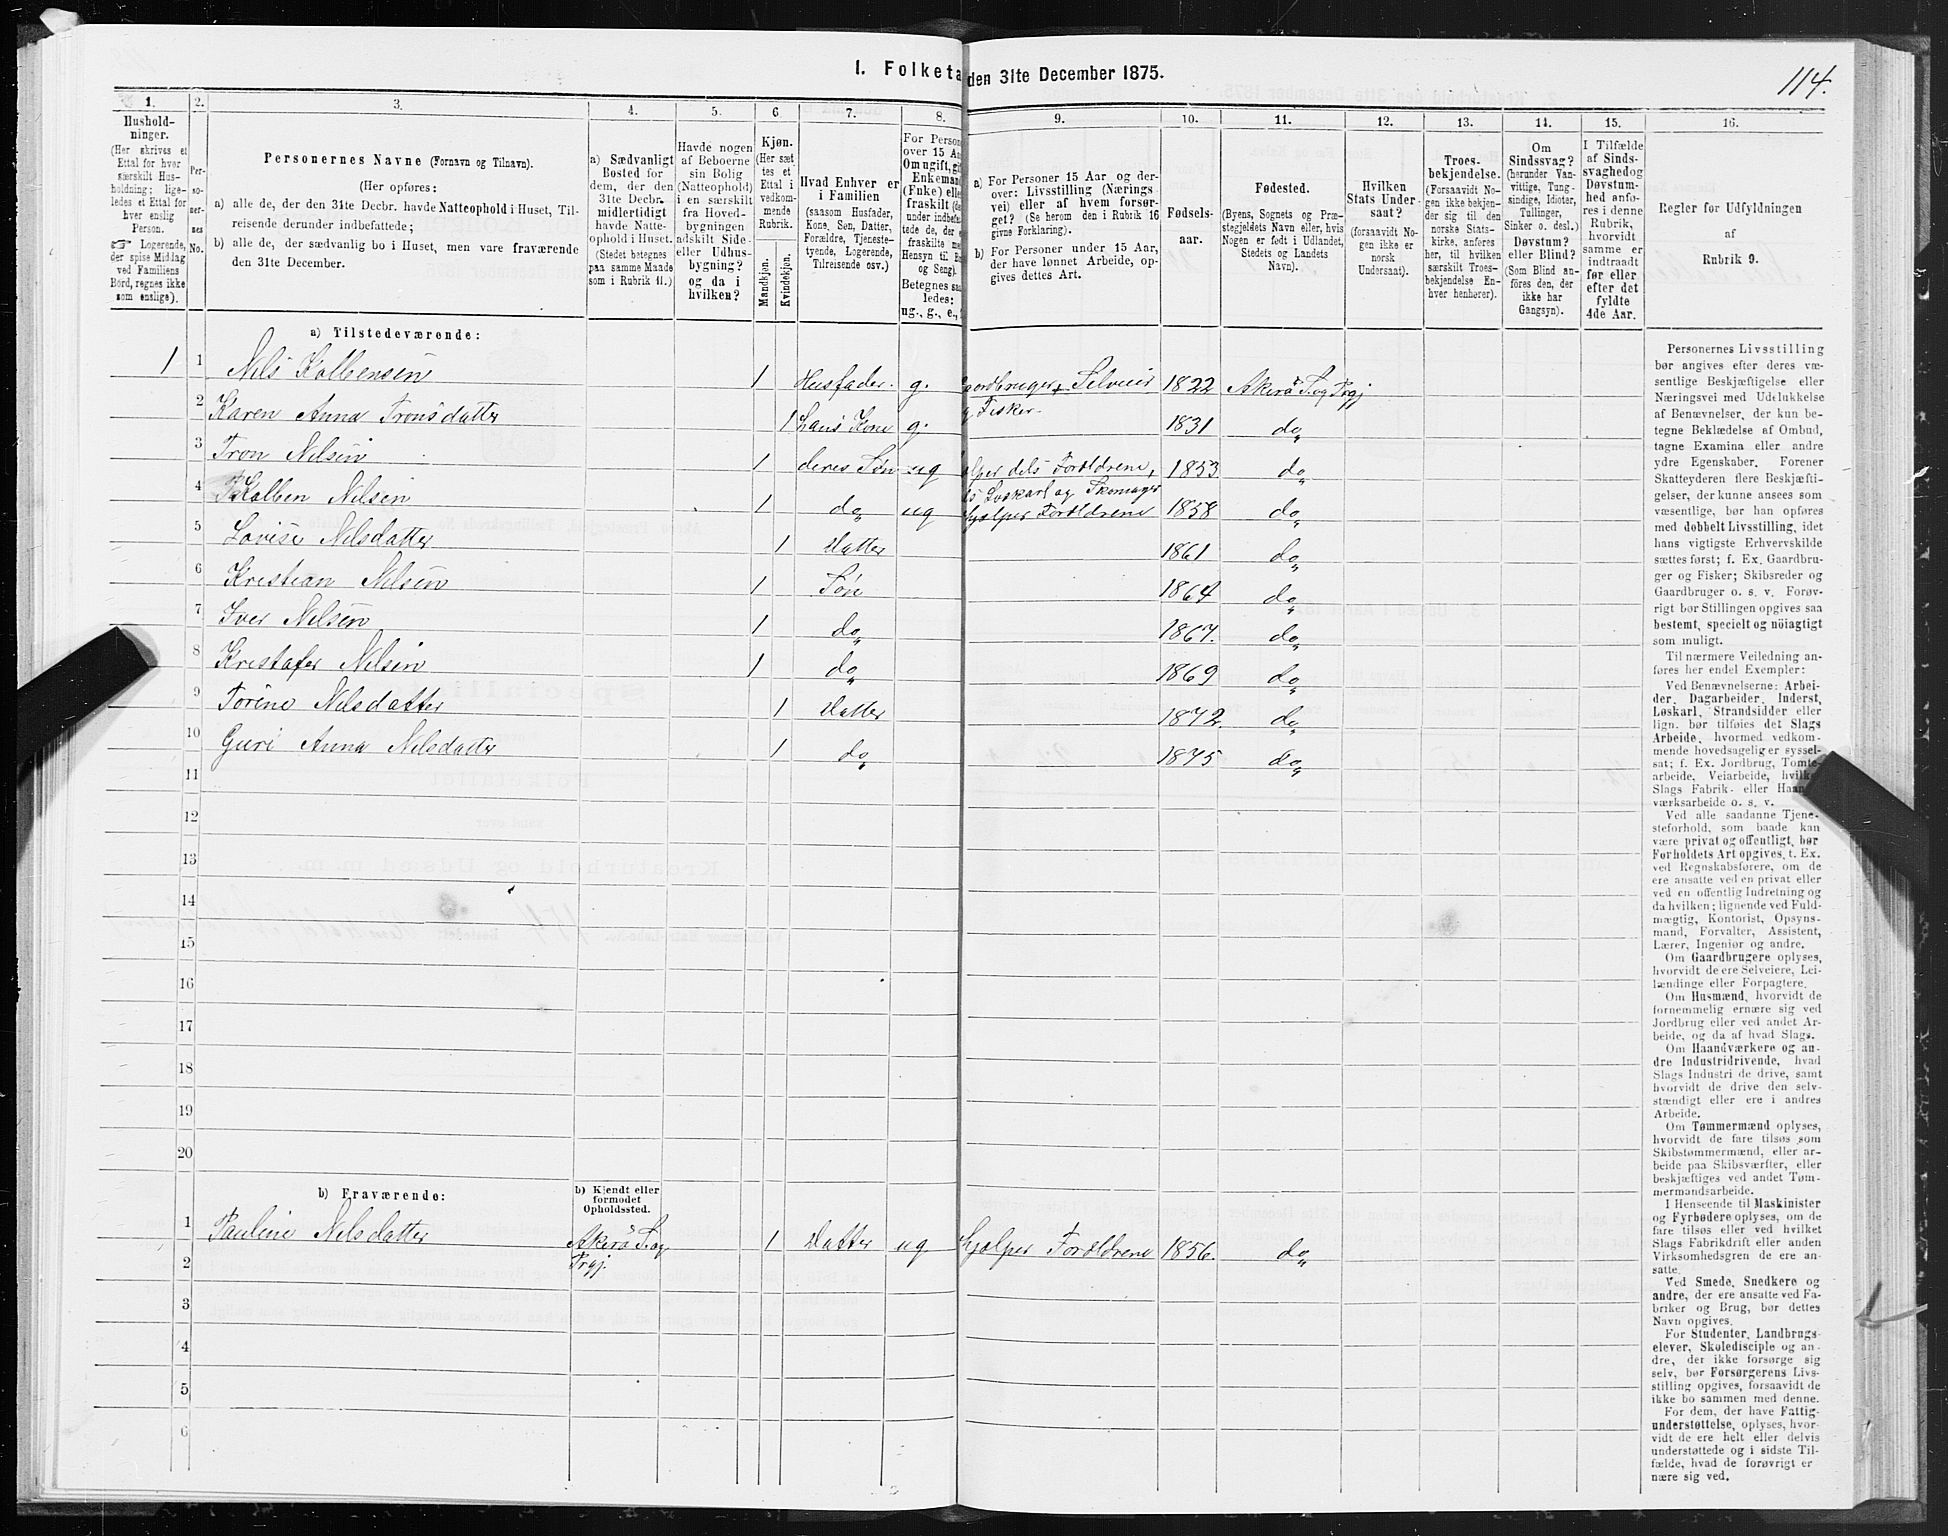 114.
I. Folketa den 31te December 1875.
1.
2.
3.
4.
5.
6
7.
8.
9.
10.
11.
12.
13.
14.
15.
16.
Hushold-
ninger.
(Her skrives et
Ettal for hver
særskilt Hus-
holdning; lige-
ledes et Ettal for
hver enslig
Person.
☞ Logerende,
der spise Middag
ved Familiens
Bord, regnes ikke
som enslige).
Per-
so-
ner-
nes
No.
Personernes Navne (Fornavn og Tilnavn).
(Her opføres:
a) alle de, der den 31te Decbr. havde Natteophold i Huset, Til-
reisende derunder indbefattede;
b) alle de, der sædvanlig bo i Huset, men vare fraværende
den 31te December.
a) Sædvanligt
Bosted for
dem, der den
31te Decbr.
midlertidigt
havde Natte-
ophold i Huset.
(Stedet betegnes
paa samme Maade
som i Rubrik 11.)
Havde nogen
af Beboerne
sin Bolig
(Natteophold)
i en særskilt
fra Hoved-
bygningen
adskilt Side-
eller Udhus-
bygning?
og da i
hvilken?
Kjøn.
(Her sæt-
tes et
Ettal i
vedkom-
mende
Rubrik.
Mandkjøn.
Kvindekjøn.
Hvad Enhver er
i Familien
(saasom Husfader,
Kone, Søn, Datter,
Forældre, Tjeneste-
tyende, Logerende,
Tilreisende osv.)
For Person
over 15 Aa
Om ugift, gif
Enkemand
(Enke) elle
fraskilt (de
under indbefat-
tede de, der e
fraskilte me
Hensyn til Bo
og Seng).
Betegnes saa
ledes:
ug., g., e.,
a) For Personer 15 Aar og der-
over: Livsstilling (Nærings-
vei) eller af hvem forsør-
get? (Se herom den i Rubrik 16
givne Forklaring).
b) For Personer under 15 Aar,
der have lønnet Arbeide, op-
gives dettes Art.
Fødsels-
aar.
Fødested.
(Byens, Sognets og Præ-
stegjeldets Navn eller, hvis
Nogen er født i Udlandet,
Stedets og Landets
Navn).
Hvilken
Stats Under-
saat?
(forsaavidt No-
gen ikke er
norsk
Undersaat).
Troes-
bekjendelse.
(Forsaavidt No-
gen ikke bekjen-
der sig til den
norske Stats-
kirke, anføres
her, til hvilken
særskilt Troes-
bekjendelse En-
hver henhører).
Om
Sindssvag?
(herunder Van-
vittige, Tung-
sindige, Idioter,
Tullinger,
Sinker o. desl.)
Døvstum?
eller Blind?
(Som Blind an-
føres den, der
ikke har
Gangsyn).
I Tilfælde
af Sinds-
svaghed og
Døvstum-
hed anføres
i denne
Rubrik,
hvorvidt
samme er
indtraadt
før eller
efter det
fyldte
4de Aar.
Regler for Udfyldningen
af
Rubrik 9.
a) Tilstedeværende:
1 1 Nils Kolbensen 1 Husfader. g. Gaardbruger, Selveier 1822 Akerø S. og Prgj
og Fisker.
2 Karen Anna Tronsdatter 1 hans Kone g. 1831 do
3 Tron Nilsen 1 deres Søn ug hjelper dels Forældrene, 1853 do
dels Løskarl og Skomager
4 Kolben Nilsen 1 do ug hjelper Forældrene 1858 do
5 Lovise Nilsdatter 1 Datter 1861 do
6 Kristian Nilsen 1 Søn 1864 do
7 Iver Nilsen 1 do 1867. do
8 Kristofer Nilsen 1 do 1869 do
9 Torine Nilsdatter 1 Datter 1872. do
10 Guri Anna Nilsdatter 1 do 1875 do
11
12
13
14
15
16
17
18
19
20
b) Fraværende:
b) Kjendt eller
formodet
Opholdssted.
1 Pauline Nilsdatter Akerø S. og 1 Datter ug hjelper Forældrene 1856. do
Prgj.
2
3
4
5
6
Personernes Livsstilling
bør angives efter deres væ-
sentlige Beskjæftigelse eller
Næringsvei med Udelukkelse
af Benævnelser, der kun be-
tegne Beklædelse af Ombud,
tagne Examina eller andre
ydre Egenskaber. Forener
Skatteyderen flere Beskjæfti-
gelser, der kunne ansees som
væsentlige, bør han opføres
med dobbelt Livsstilling, idet
hans vigtigste Erhvervskilde
sættes først; f. Ex. Gaardbru-
ger og Fisker; Skibsreder og
Gaardbruger o. s. v. Forøv-
rigt bør Stillingen opgives saa
bestemt, specielt og nöiagtigt
som muligt.
Til nærmere Veiledning an-
føres her endel Exempler:
Ved Benævnelserne: Arbei-
der, Dagarbeider, Inderst,
Løskarl, Strandsidder eller
lign. bør tilføies det Slags
Arbeide, hvormed vedkom-
mende hovedsagelig er syssel-
sat; f. Ex. Jordbrug, Tomte-
arbeide, Veiarbeide, hvilket
Slags Fabrik- eller Haand-
værksarbeide o. s. v.
Ved alle saadanne Tjene-
steforhold, som baade kan
være privat og offentligt, bør
Forholdets Art opgives, t. Ex.
ved Regnskabsførere, om de
ere ansatte ved en privat eller
ved en offentlig Indretning og
da hvilken; lignende ved Fuld-
mægtig, Kontorist, Opsyns-
mand, Forvalter, Assistent,
Lærer, Ingeniør og andre.
Om Gaardbrugere oplyses,
hvorvidt de ere Selveiere, Lei-
lændinge eller Forpagtere.
Om Husmænd, hvorvidt de
fornemmelig ernære sig ved
Jordbrug eller ved andet Ar-
beide, og da af hvad Slags.
Om Haandværkere og an-
dre Industridrivende, hvad
Slags Industri de drive, samt
hvorvidt de drive den selv-
stændigt eller ere i andres
Arbeide.
Om Tømmermænd oplyses,
hvorvidt de fare tilsøs som
Skibstømmermænd, eller ar-
beide paa Skibsværfter, eller
beskjæftiges ved andet Tøm-
mermandsarbeide.
I Henseende til Maskinister
og Fyrbødere oplyses, om de
fare tilsøs eller ved hvilket
Slags Fabrikdrift eller anden
Virksomhedsgren de ere an-
satte.
Ved Smede, Snedkere og
andre, der ere ansatte ved Fa-
briker og Brug, bør dettes
Navn opgives.
For Studenter, Landbrugs-
elever, Skoledisciple og an-
dre, der ikke forsørge sig
selv, bør Forsørgerens Livs-
stilling opgives, forsaavidt de
ikke bo sammen med denne.
For dem, der have Fattig-
understøttelse, oplyses, hvor-
vidt de ere helt eller delvis
understøttede og i sidste Til-
fælde, hvad de forøvrigt er
nære sig ved.